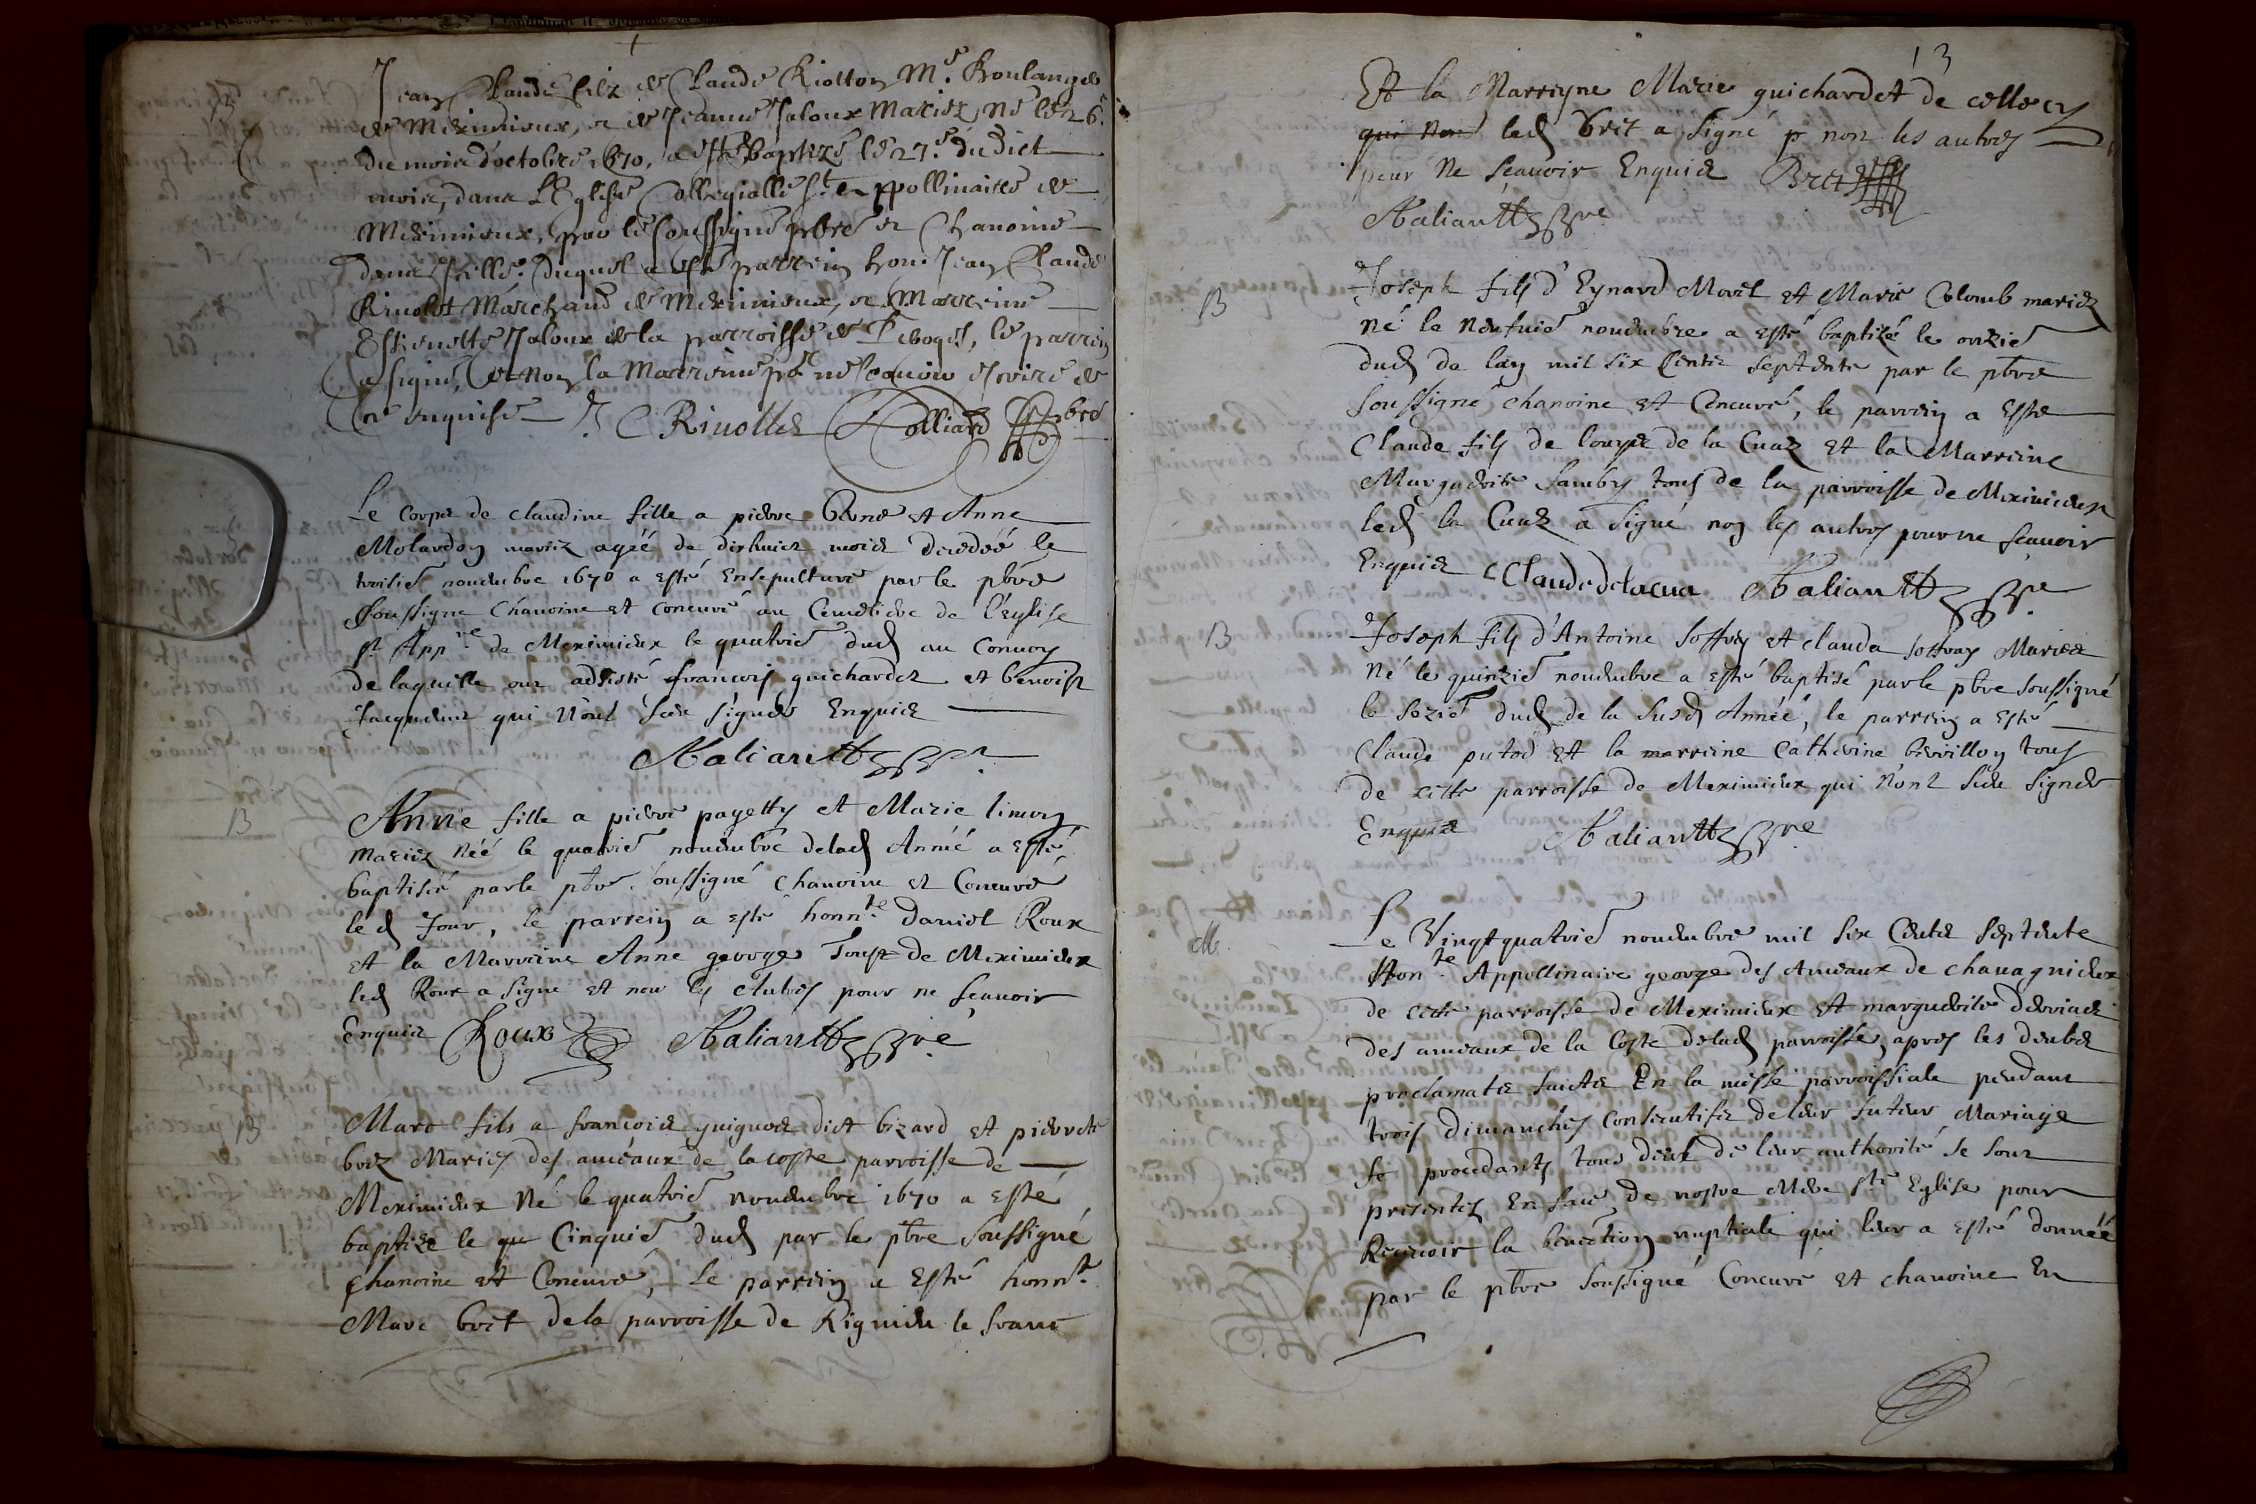 Jean Claude filz de Claude Riotton M.e Boulanger
de Meximieux, et de Jeanne Jaloux mariez, né le 26.e
du mois d'octobre 1670, a esté baptizé le 27.e dudict
mois, dans L'Eglise Collegialle St Appollinaire de
Meximieux, par le soussigné pbre et Chanoine
dans icelle. Duquel a esté parrein hon. Jean Claude
Rivolet Marchand de Meximieux, et Marreine
Estiennette Jaloux de la parroisse de, le parrein
a signé, et non la Marreine pr ne scavoir escrire de
ce enquise J C Rivollet Colliard pbre
Le corps de claudine fille a pierre et Anne
Molardon mariz agéé de dixhuict mois decedéé le
troisie novembre 1670 a esté Ensepulturé par le pbre
soussigné Chanoine et concuré au Cemetiere de l'Eglise
St App.re de Meximieux le quatrie dud au Convoy
de laquelle ont adsisté francois guichardet et benoist
Jacquemet qui n'ont sceu signer Enquis
pbre
B
Anne fille a pierre pagetty et Marie limon
mariez néé le quatrie novembre delad Année a esté
baptiséé par le pbre soussigné chanoine et Concuré
led Jour, le parrein a esté honn.te daniel Roux
et la Marreine Anne george Tous de Meximieux
led Roux a signé et non les autres pour ne scavoir
Enquis Roux pbre
B
Marc fils a francois guignod dict bizard et pierrette
bret Maries des améaux de la coste parroisse de
Meximieux né le quatrie novembre 1670 a esté
baptizé le qu Cinquie dud par le pbre soussigné
chanoine et Concuré, Le parrein a Esté honn.te
Marc bret de la parroisse de Rignieu le franc
13
Et la Marreyne Marie guichardet de celle cy
qui non led bret a signé et non les autres
pour ne scavoir Enquis Bret
pbre
B
Joseph fils d'Eynard Morel et Marie Colomb mariez
né le neufuie novembre a esté baptizé le onzie
dud de lan mil six Cents septente par le pbre
soussigné chanoine et Concuré, le parrein a Esté
Claude fils de de la Cuaz et la Marreine
Marguerite tous de la parroisse de Meximieux
led la Cuaz a signé non les autres pour ne scavoir
Enquis Claude delacua pbre
B
Joseph fils d'Antoine Joffray et claude Joffray Maries
né le quinzie novembre a esté baptisé par le pbre soussigné
le sezie dud de la susd Année, le parrein a esté
Claude putod et la marreine Catherine tous
de cette parroisse de Meximieux qui n'ont sceu signer
Enquis pbre
M.
Le Vingt quatrie novembre mil six Cents septente
Hon.te Appollinaire george des Ameaux de chavagnieux
de cette parroisse de Meximieux et marguerite
des ameaux de la Coste delad parroisse, apres les deubes
proclamats faicts En la messe parroissiale pendant
trois dimanches consecutifs de leur futeur Mariage
se procedants tous deux de leur authorité se sont
presentez En face de nostre Mere Ste Eglise pour
Recevoir la benection nuptiale qui leur a esté donnéé
par le pbre soussigné Concuré et chanoine En